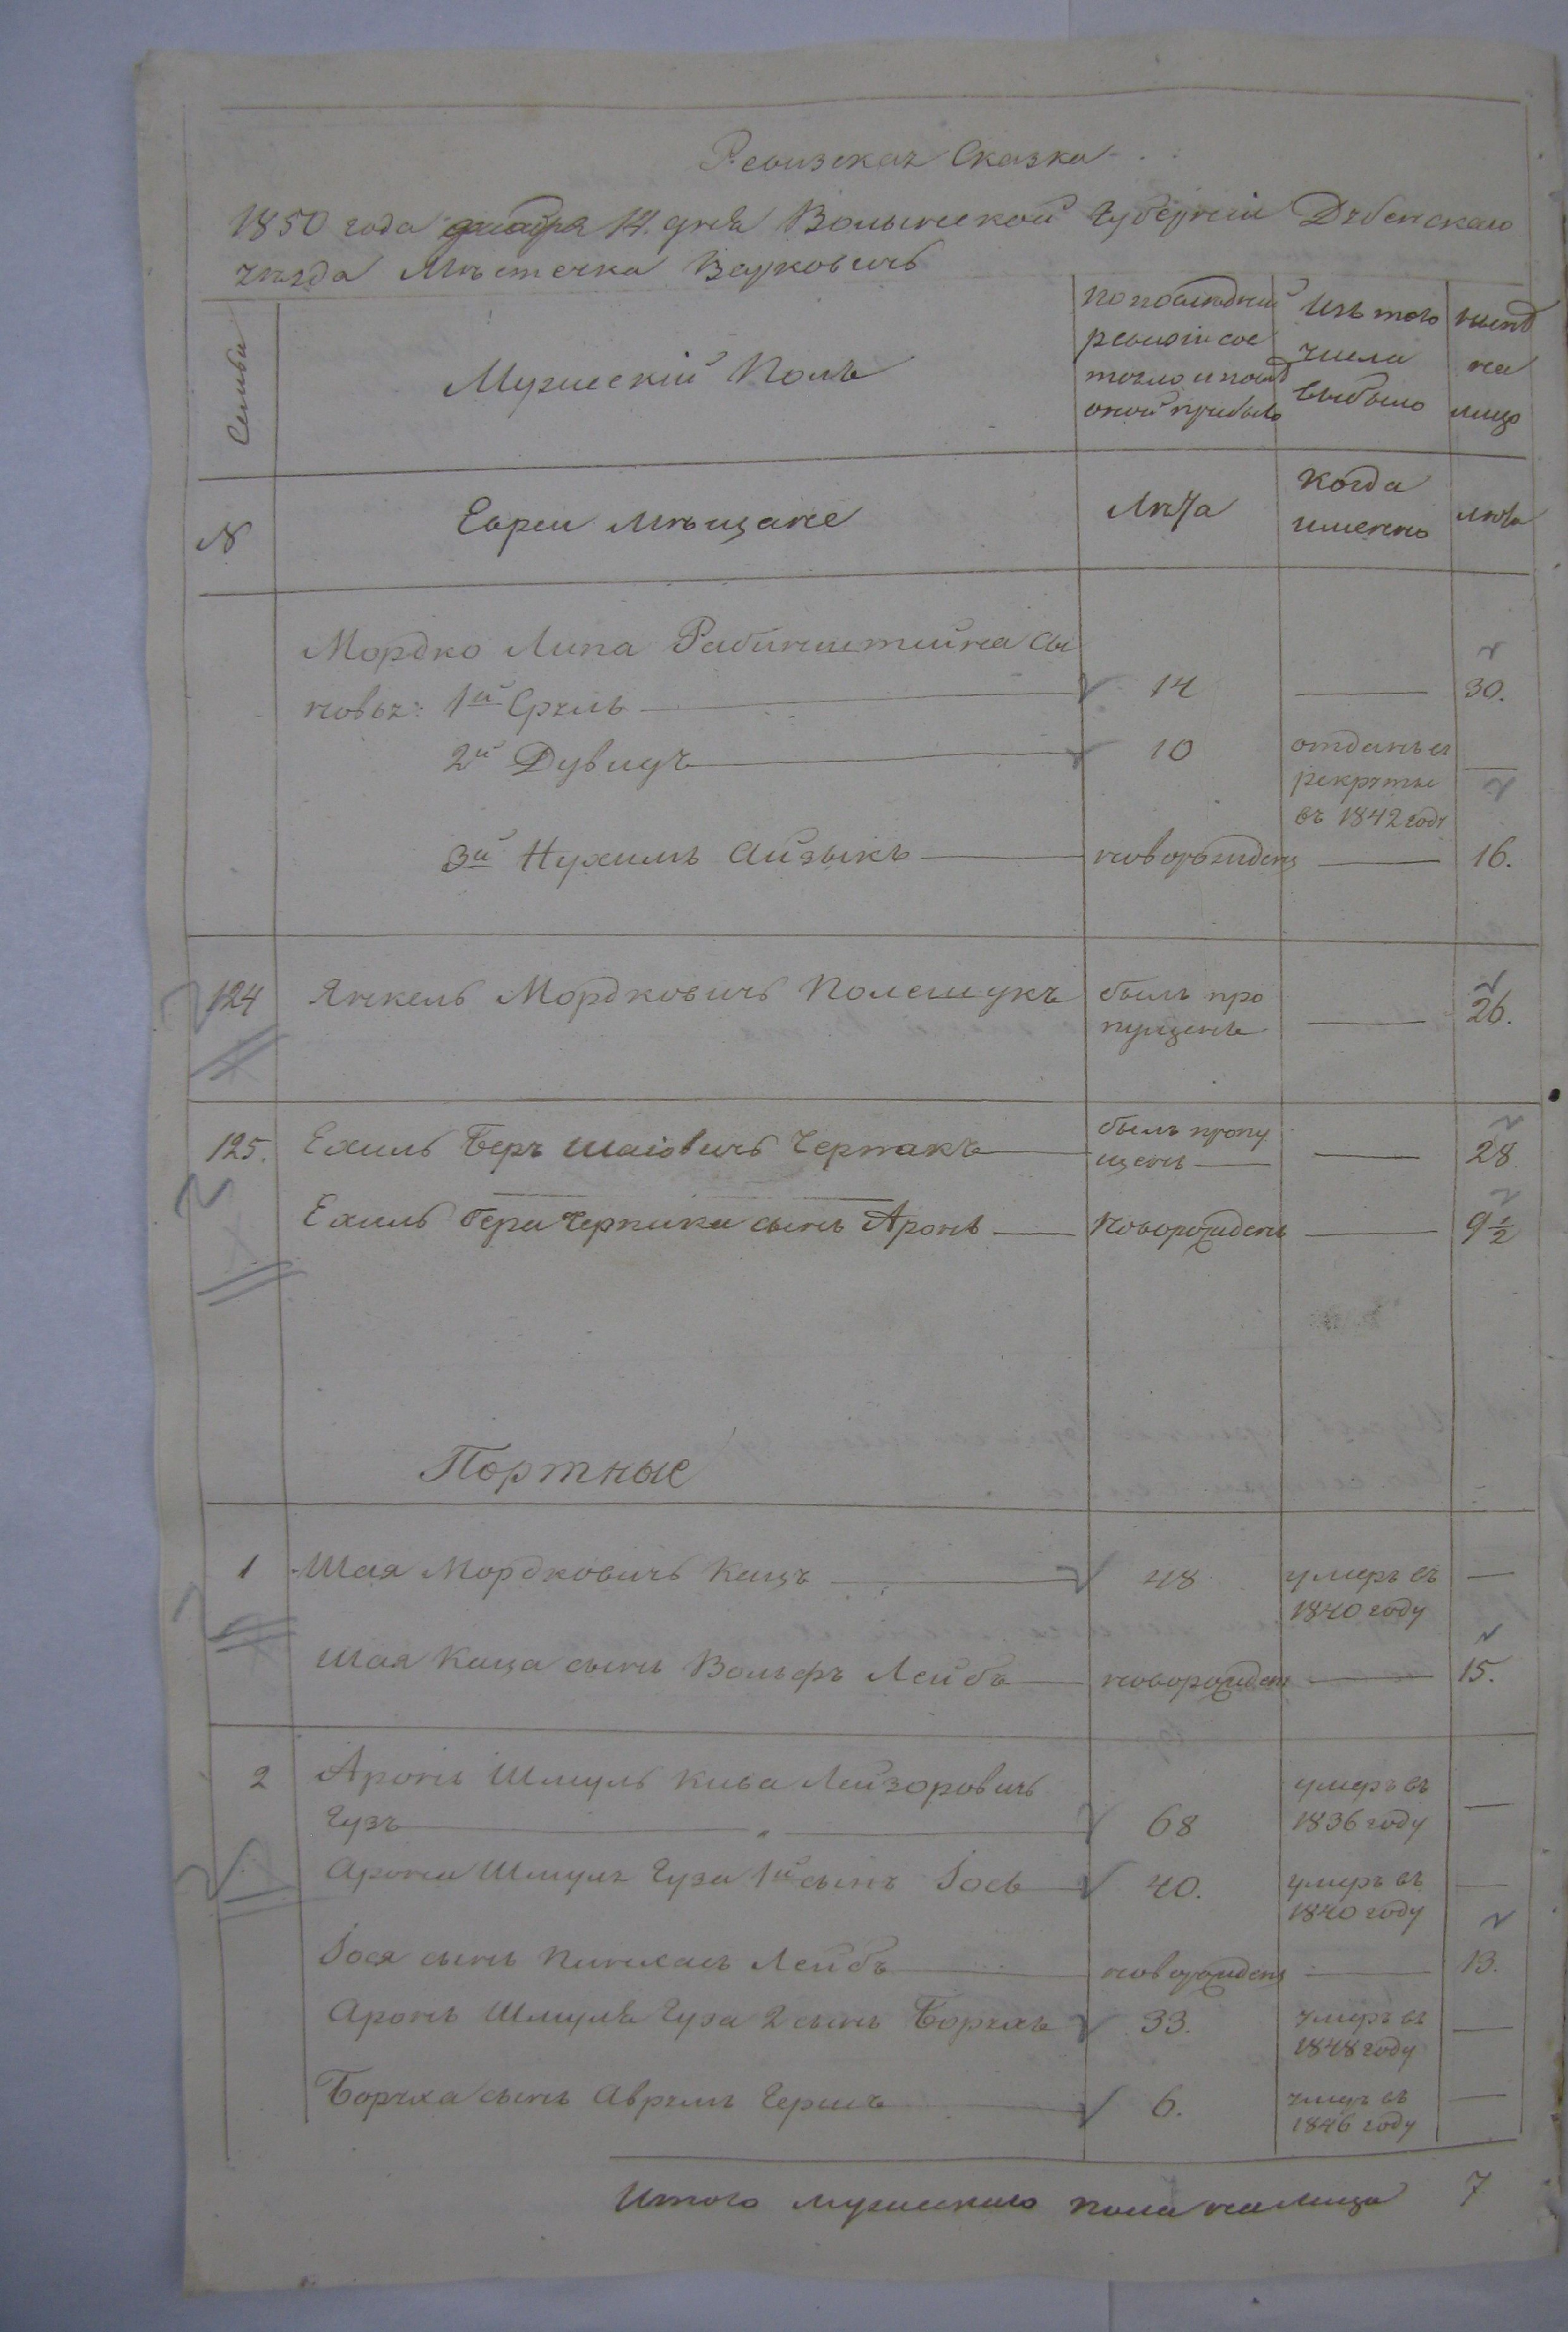 Ревизская Сказка
1850 года октября 14. дня Волынской Губернiи Дубенскаго
уѣзда Мѣстечка Варковичь
Семьи
Мужескiй Полъ
По последней
ревизiи сос
тояло и послѣ
оной прибыло
Изъ того
числа
выбыло
нынѣ
на
лицо
№
Евреи мѣщане
Лѣта
Когда
именно
лѣта
Мордко Липа Рабинштейна Сы
новья: 1й Сруль
14
30.
2й Дувидъ
10
отданъ въ
рекруты
въ 1842 году
3й Нухимъ Айзыкъ
новорожденъ
16.
124
Янкель Мордковичь Полешукъ
былъ про
пущенъ
26.
125.
Ехиль Беръ Шаiовичь Черпакъ
былъ пропу
щенъ
28
Ехиль Бера Черпака сынъ Аронъ
Новорожденъ
9½
Портные
1
Шая Мордковичь Кацъ
48
умеръ въ
1840 году
Шая Каца сынъ Вольфъ Лейбъ
новорожден
15.
2
Аронъ Шмуль Кива Лейзоровичь
Гузъ
68
умеръ въ
1836 году
Арона Шмуля Гуза 1й сынъ Iось
40.
умеръ въ
1840 году
Iося сынъ Пинхасъ Лейбъ
новорожденъ
13.
Аронъ Шмуля Гуза 2 сынъ Борухъ
33.
умеръ въ
1848 году
Боруха сынъ Аврумъ Гершъ
6.
умеръ въ
1846 году
Итого мужескаго пола на лицо 7